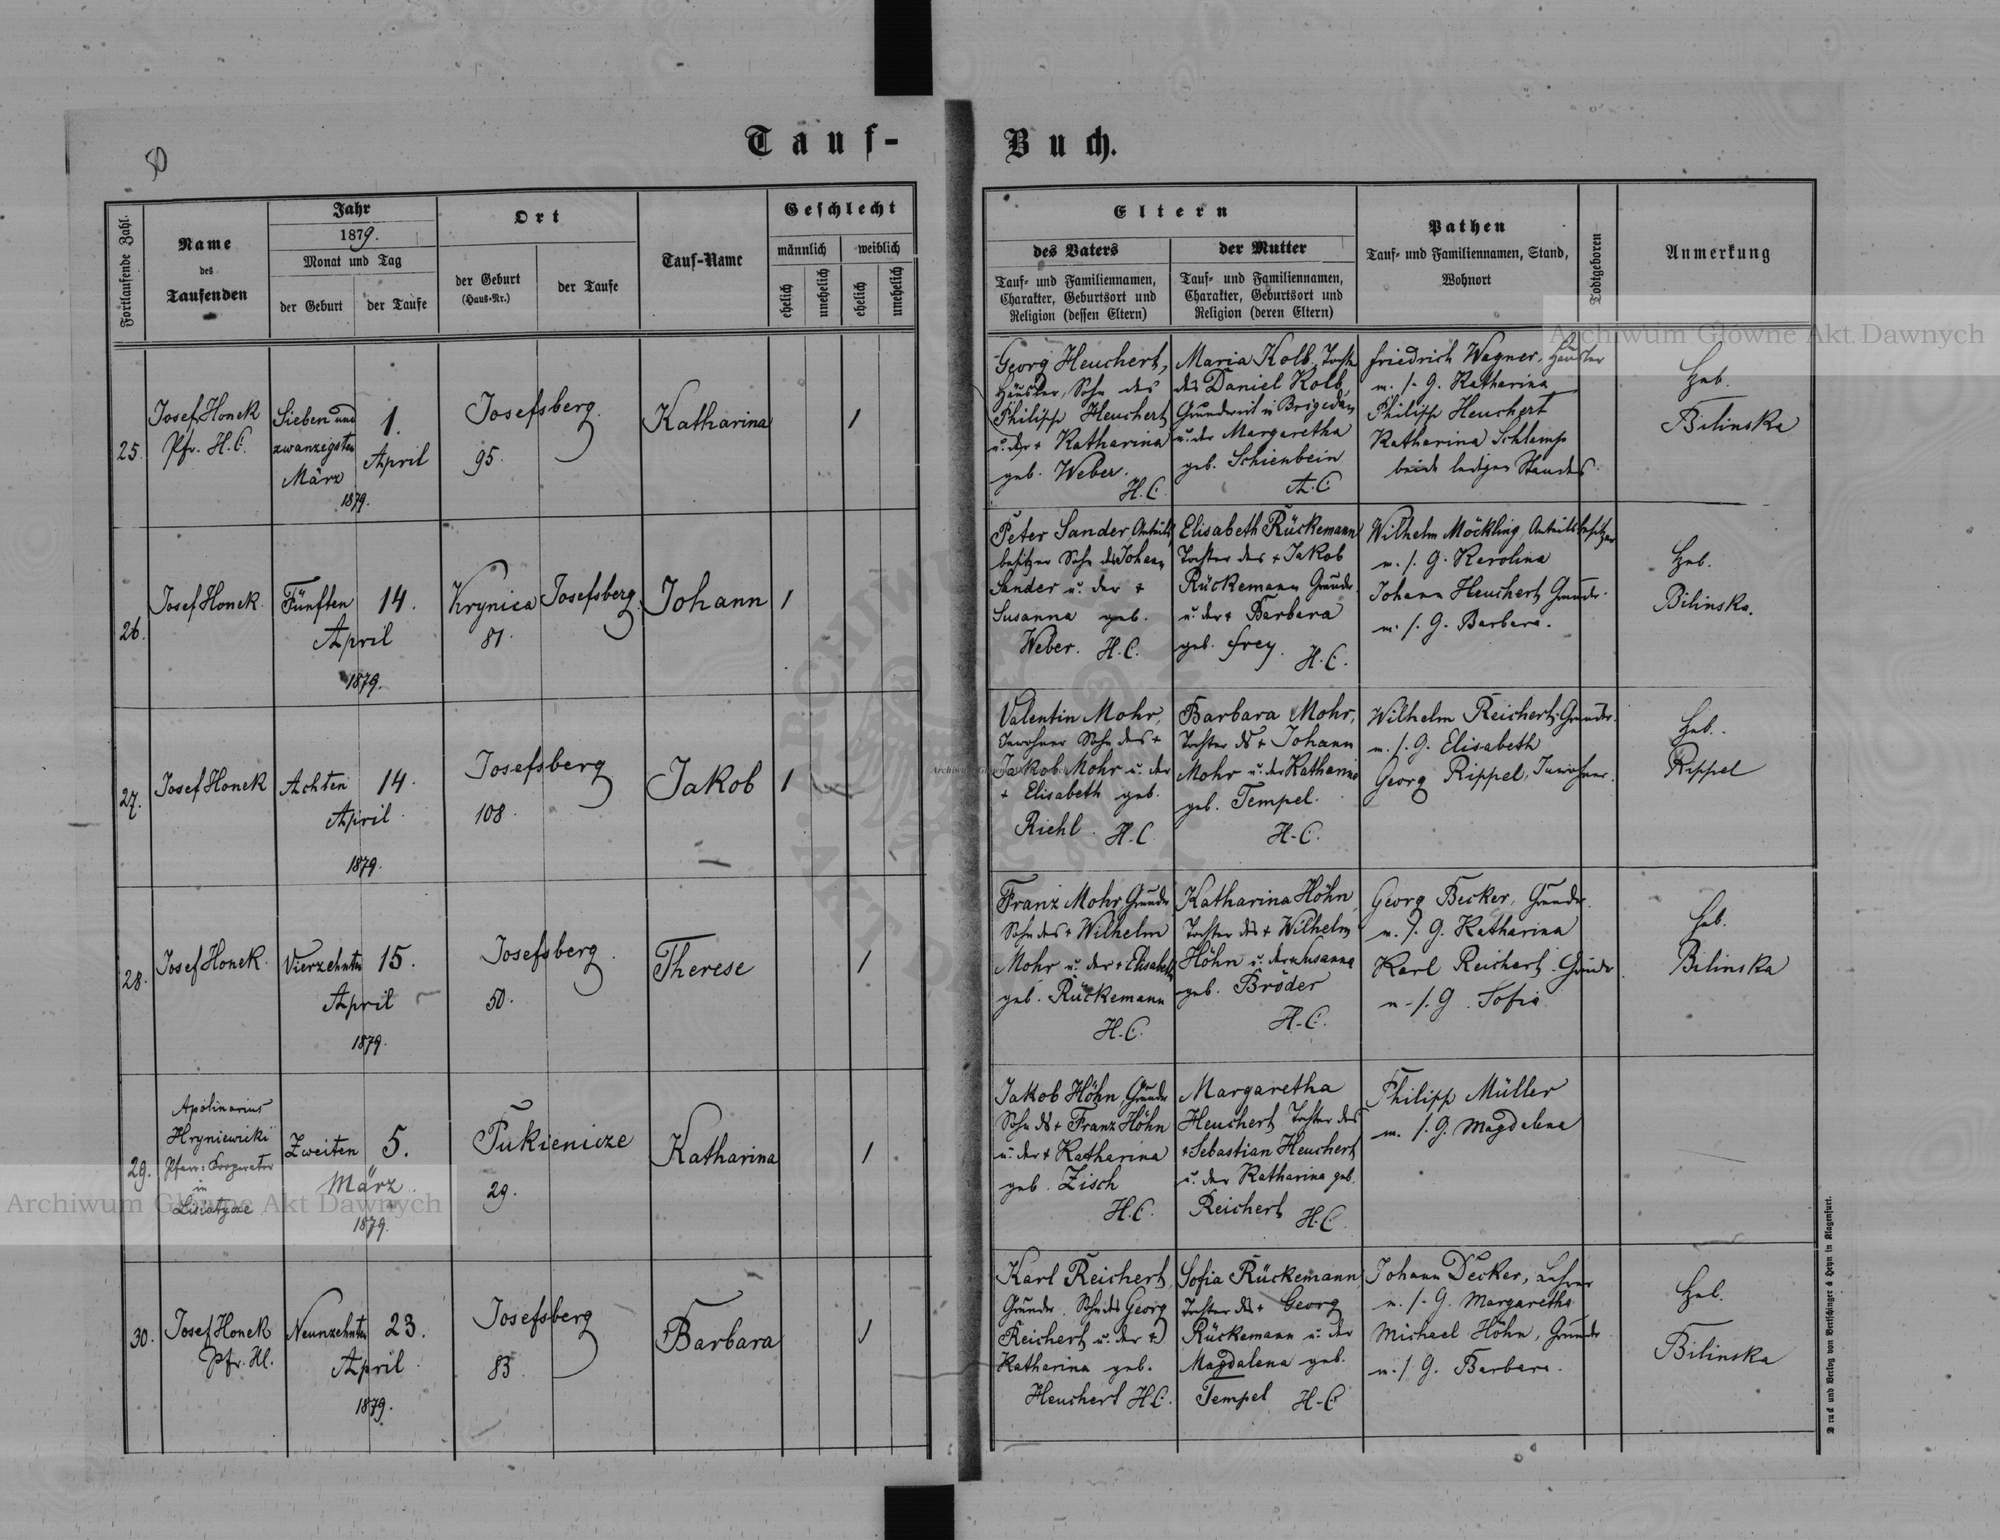 50
Tauf-Buch.
Fortlaufende Zahl.
Name
des
Taufenden
Jahr
1879.
Monat und Tag
der Geburt
der Taufe
Ort
der Geburt
(Haus-Nr.)
der Taufe
Tauf-Name
Geschlecht
männlich
weiblich
ehelich
unehelich
ehelich
unehelich
Eltern
des Vaters
Tauf- und Familiennamen,
Charakter, Geburtsort und
Religion (dessen Eltern)
der Mutter
Tauf- und Familiennamen,
Charakter, Geburtsort und
Religion (deren Eltern)
Pathen
Tauf- und Familiennamen, Stand,
Wohnort
Todtgeboren
Anmerkung
25.
Josef Honek
Pfr. H.C.
Sieben und
zwanzigsten
März
1.
April
1879.
Josefsberg
95.
Katharina
1
Georg Heuchert,
Häusler, Sohn des
Philipp Heuchert
u. der + Katharina
geb. Weber.
H.C.
Maria Kolb, Tocht.
des Daniel Kolb,
Grundwirt in Brigedau
u. der Margaretha
geb. Schienbein
A.C.
Friedrich Wagner, Häusler
m. s. G. Katharina
Philipp Heuchert
Katharina Schlamp
beide ledigen Standes.
Heb.
Bilinska
26.
Josef Honek.
Fünften
14.
April
1879.
Krynica
81.
Josefsberg
Johann
1
Peter Sander, Anteils
besitzer Sohn des Johann
Sander u. der +
Susanna geb.
Weber. H.C.
Elisabeth Rückemann
Tochter des + Jakob
Rückemann Grundw.
u. der + Barbara
geb. Frey.
H.C.
Wilhelm Möckling, Anteilsbesitzer
m. s. G. Karolina
Johann Heuchert Grundw.
m. s. G. Barbara.
Heb.
Bilinska.
27.
Josef Honek
Achten
14.
April
1879.
Josefsberg
108.
Jakob
1
Valentin Mohr,
Inwohner Sohn des +
Jakob Mohr u. der
+ Elisabeth geb.
Riehl. H.C.
Barbara Mohr,
Tochter ds + Johann
Mohr u. der Katharina
geb. Tempel.
H.C.
Wilhelm Reichert, Grundw.
m. s. G. Elisabeth
Georg Rippel, Inwohner.
Heb.
Rippel
28.
Josef Honek.
Vierzehnten
15.
April
1879.
Josefsberg
50.
Therese
1
Franz Mohr Grundw
Sohn des + Wilhelm
Mohr u. der + Elisabeth
geb. Rückemann
H.C.
Katharina Höhn
Tochter des + Wilhelm
Höhn u. der + Susanna
geb. Bröder
H.C.
Georg Becker, Grundw.
m. s. G. Katharina
Karl Reichert Grundw.
m. s. G. Sofia
Heb.
Bilinska
29.
Apolinarius
Hryniewicki
Pfarr-Kooperator
in
Lisiatycze
Zweiten
5.
März
1879.
Pukienicze
29.
Katharina
1
Jakob Höhn Grundw
Sohn ds + Franz Höhn
u. der + Katharina
geb. Zisch
H.C.
Margaretha
Heuchert Tochter des
+ Sebastian Heuchert
u. der Katharina geb.
Reichert H.C.
Philipp Müller
m. s. G. Magdalena
30.
Josef Honek
Pfr. H.C.
Neunzehnten
23.
April
1879.
Josefsberg
83.
Barbara
1
Karl Reichert,
Grundw. Sohn des Georg
Reichert u. der +
Katharina geb.
Heuchert H.C.
Sofia Rückemann
Tochter des + Georg
Rückemann u. der
Magdalena geb.
Tempel H.C.
Johann Decker, Lehrer
m. s. G. Margaretha
Michael Höhn, Grundw.
m. s. G. Barbara.
Heb.
Bilinska
Druck und Verlag von Bertschinger & Heyn in Klagenfurt.
Archiwum Główne Akt Dawnych
Archiwum Główne Akt Dawnych